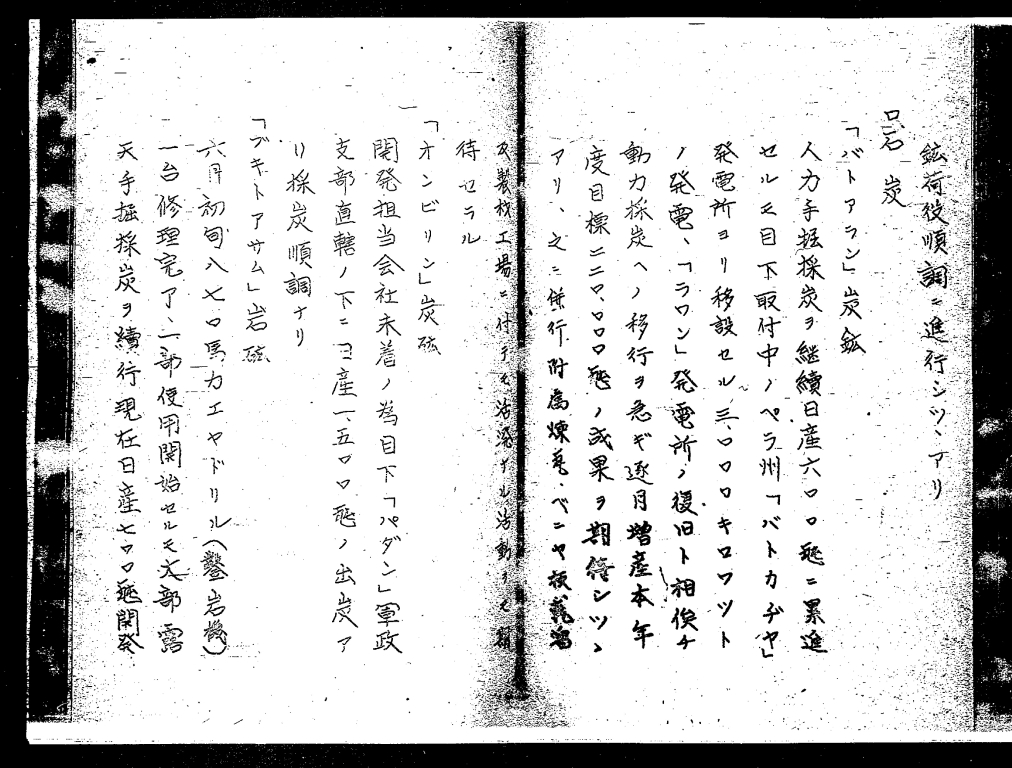 鉱荷役順調ニ進行シツヽアリ
口石炭
「バトアラン」炭鉱
人力手掘採炭ヲ継続日産六〇〇瓲ニ累進
セルモ目下取付中ノペラ州「バトカヂヤ」
発電所ヨリ移設セル三、〇〇〇キロワツト
ノ発電、「ラワン」発電所ノ復旧ト相俟チ
動力採炭ヘノ移行ヲ急ギ逐月増産本年
度目標二二〇、〇〇〇瓲ノ成果ヲ期待シツヽ
アリ、之ニ併行附属煉瓦、ベニヤ板
及製材工場ニ付テモ活溌ナル活動
待セラル
「オンビリン」炭砿
開発担当会社未着ノ為目下「パダン」軍政
支部直轄ノ下ニ日産一、五〇〇瓲ノ出炭ア
リ採炭順調ナリ
「ブキトアサム」岩砿
六月初旬八七〇馬力エヤドリル(鑿岩機)
一台修理完了、一部使用開始セルモ大部露
天手掘採炭ヲ続行現在日産七〇〇瓲開発